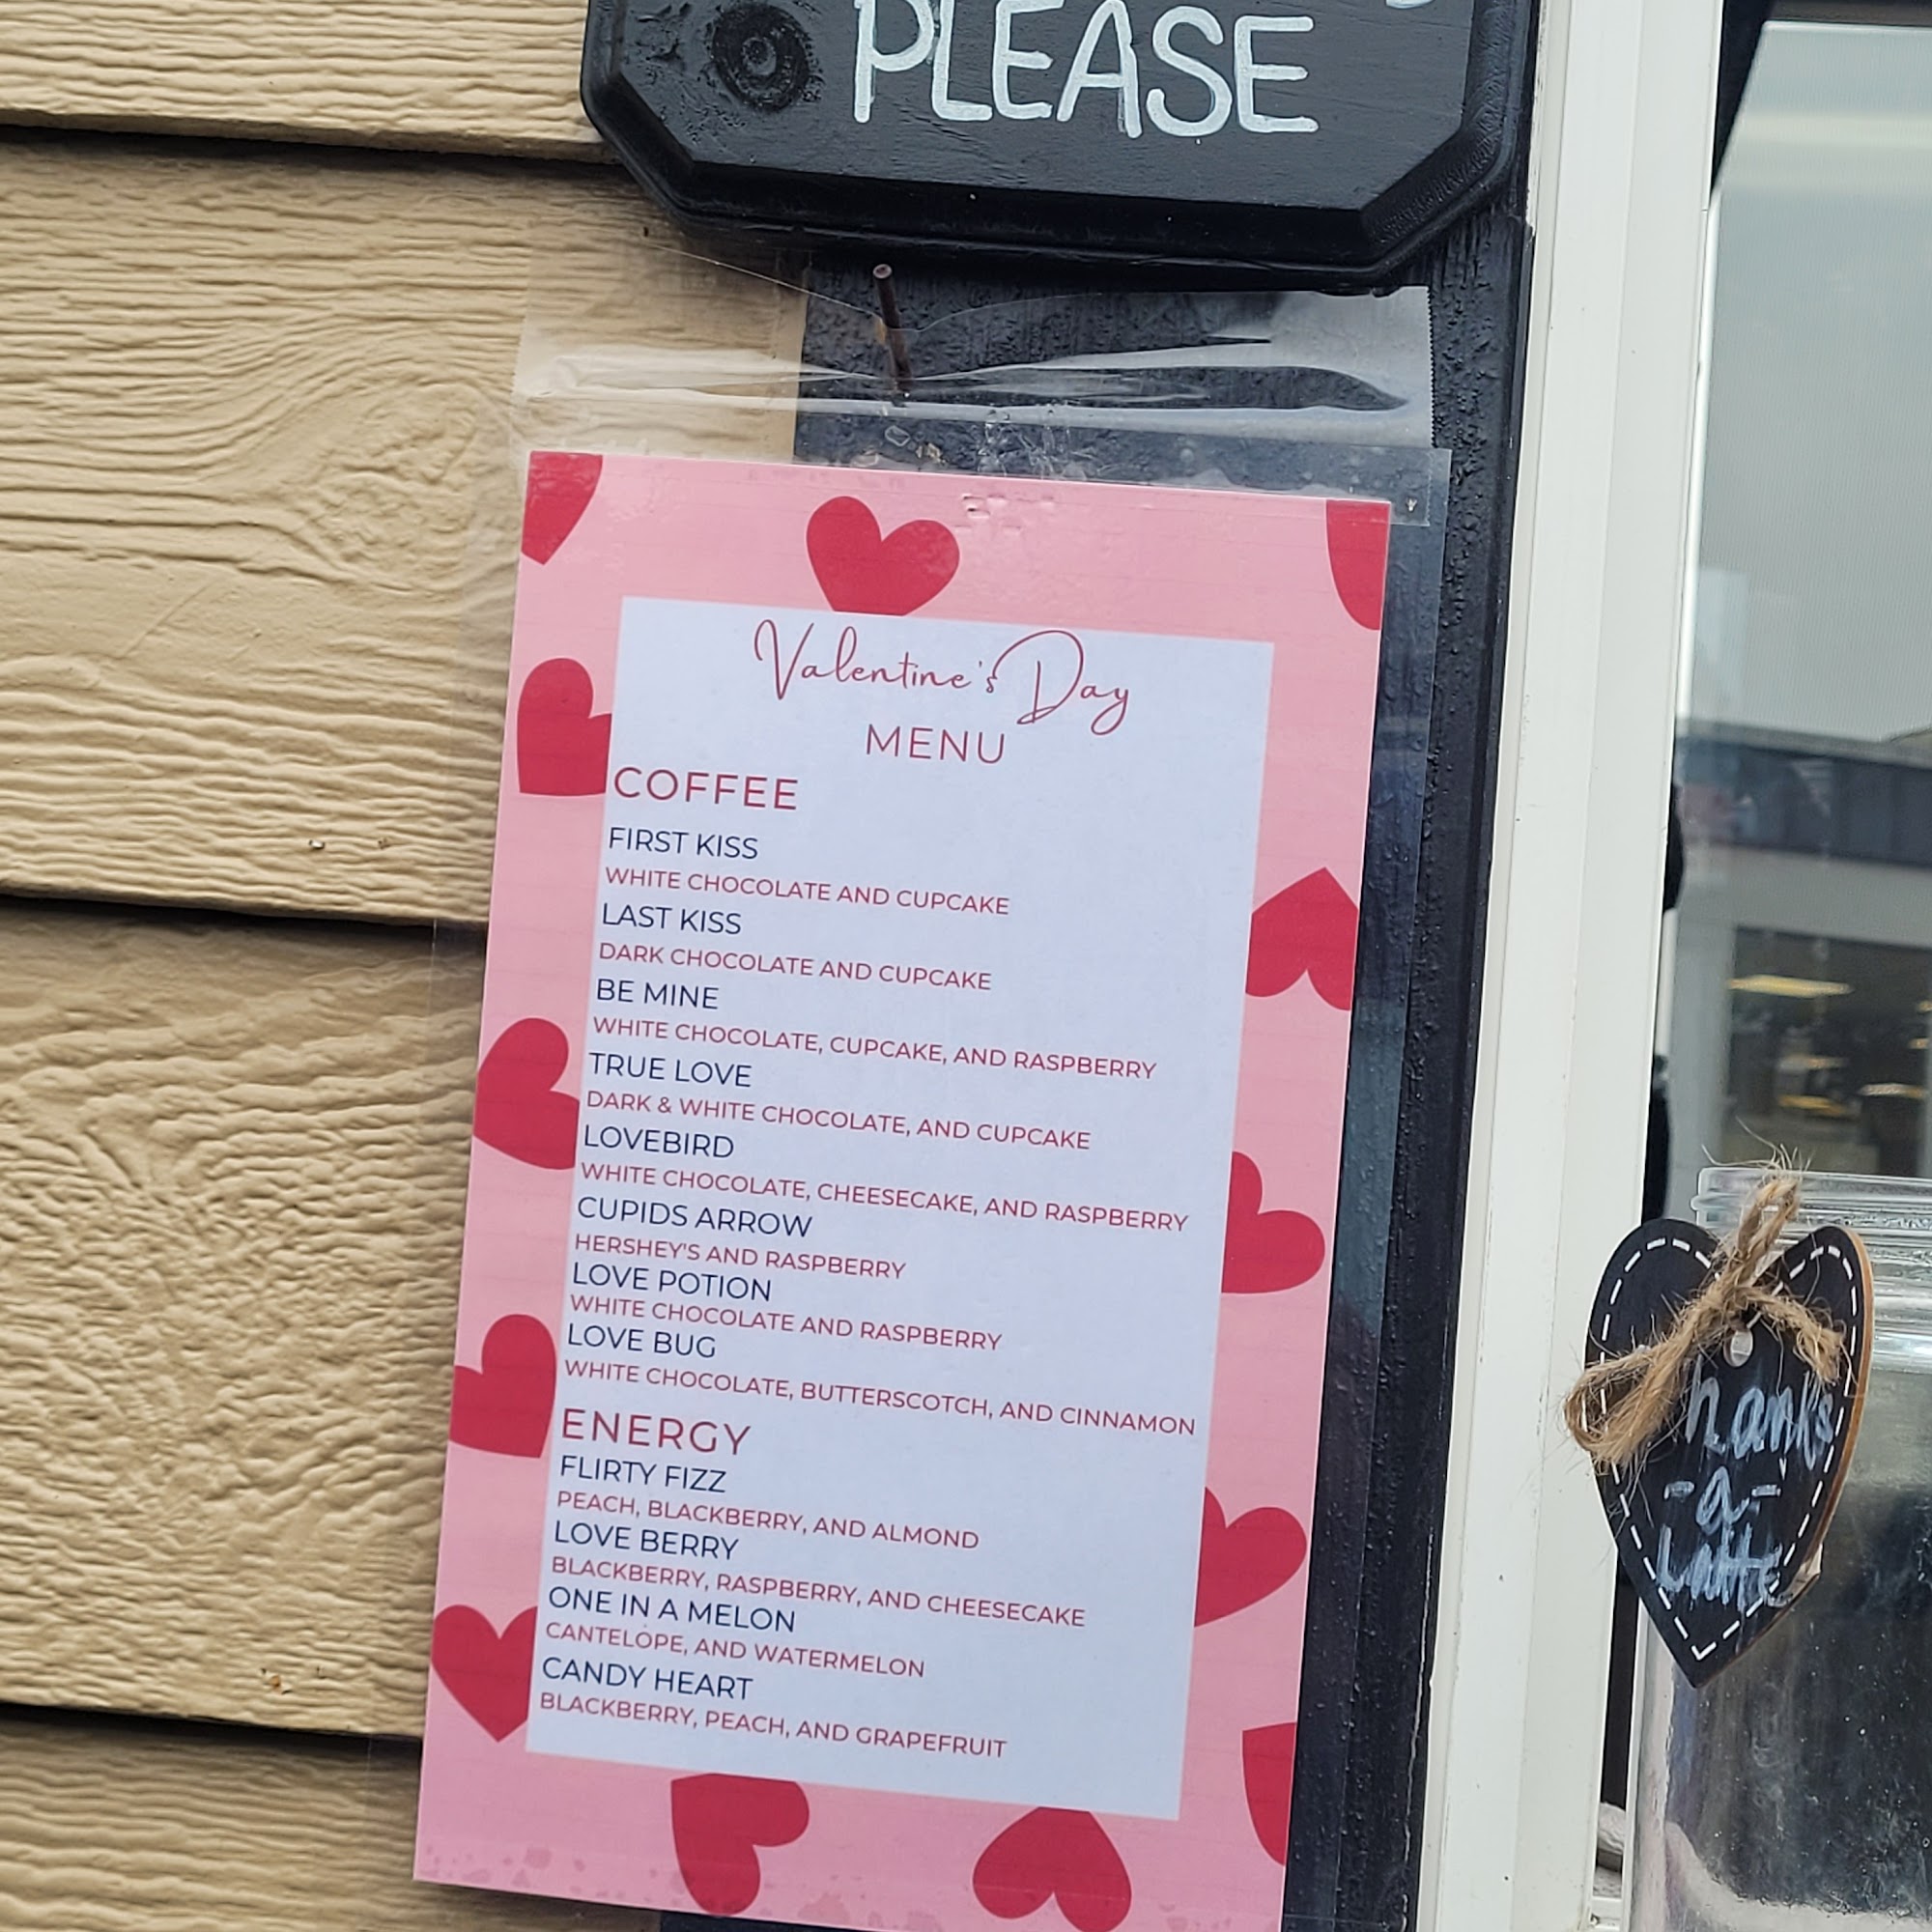 PLEASE
Valentine's Day
MENU
COFFEE
FIRST KISS
WHITE CHOCOLATE AND CUPCAKE
LAST KISS
DARK CHOCOLATE AND CUPCAKE
BE MINE
WHITE CHOCOLATE, CUPCAKE, AND RASPBERRY
TRUE LOVE
DARK & WHITE CHOCOLATE, AND CUPCAKE
LOVEBIRD
WHITE CHOCOLATE, CHEESECAKE, AND RASPBERRY
CUPIDS ARROW
HERSHEY'S AND RASPBERRY
LOVE POTION
WHITE CHOCOLATE AND RASPBERRY
LOVE BUG
WHITE CHOCOLATE, BUTTERSCOTCH, AND CINNAMON
ENERGY
FLIRTY FIZZ
PEACH, BLACKBERRY, AND ALMOND
LOVE BERRY
BLACKBERRY, RASPBERRY, AND CHEESECAKE
ONE IN A MELON
CANTELOPE, AND WATERMELON
CANDY HEART
BLACKBERRY, PEACH, AND GRAPEFRUIT
Thanks
-a-
Latte